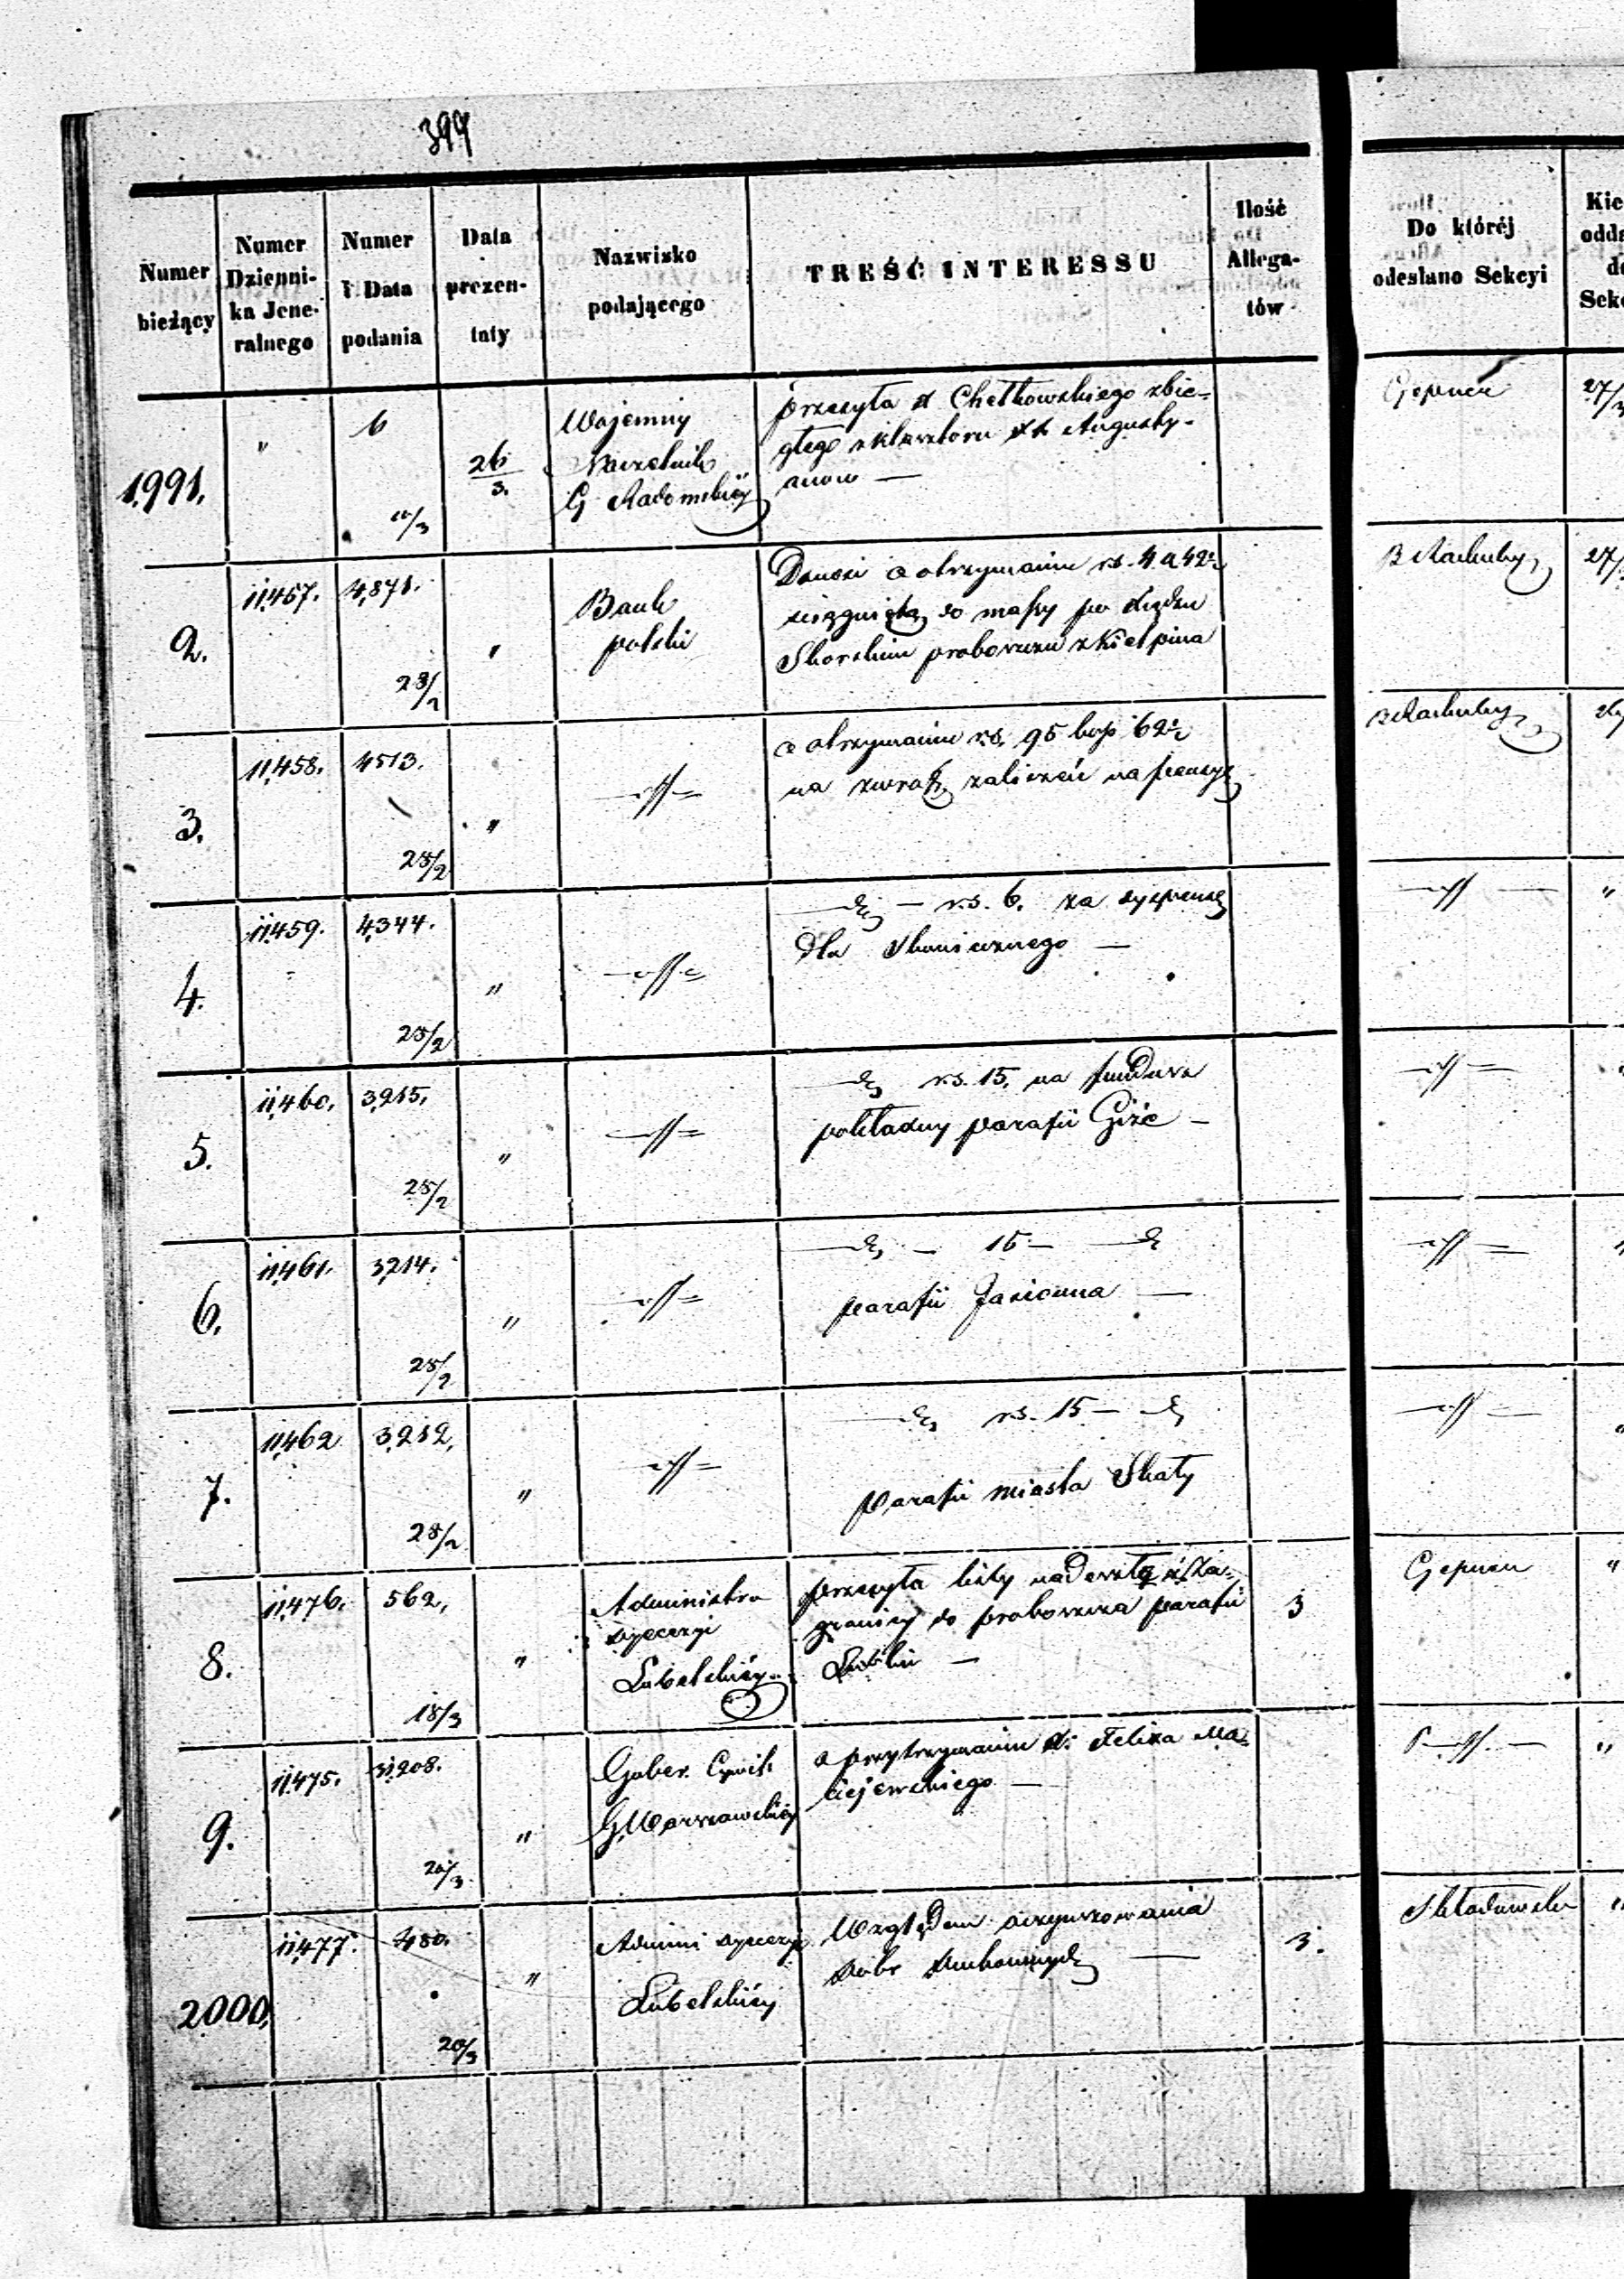 399
Numer bieżący
Numer Dzienni-ka Jene-ralnego
Numer i Data podania
Data prezen-taty
Nazwisko podającego
TREŚĆ INTERESSU
Ilość Allega-tów
Do któréj odesłano Sekcyi
1991.
"
6
11/3
26/3.
Wojenny
Naczelnik
G Radomskiéj
przesyła
Chełkowskiego zbie-
głego z klasztoru Augusty-
anow —
27/3
2.
11,457.
4,871.
28/2
"
Bank
polski
Donosi o otrzymaniu rs. 4
do massy po Księdzu
Skorskim proboszczu z Kiełpina
B Rachuby
27/
3.
11,458.
4513.
28/2
"
o otrzymaniu rs. 95 kop 62
na zwrot zaliczeń na pensye
B Rachuby
4.
11,459.
4,344.
28/2
"
— rs. 6. za dyspensę
dla Skoniecznego —
"
5.
11,460.
3,215.
28/2
"
rs. 15. na fundusz
pokładny parafii Giże —
6.
11,461.
3,214.
28/2
"
— 15 —
parafii Jasienna —
7.
11,462
3,212,
28/2
"
rs. 15 —
parafii miasta Skały
8.
11,476.
562,
18/3
"
Administra
dyecezyi
Lubelskiéj
przesyła listy nadeszłe z Za-
granicy do proboszcza parafii
Lublin —
3
Gepner
"
9.
11,475.
31,208.
20/3
"
Guber. Cywil.
G. Warszawskiéj
o przytrzymaniu X. Felixa Ma-
ciejewskiego —
"
2000.
11,477.
480.
20/3
"
Admini dyecezyi
Lubelskiéj
Względem oczynszowania
dobr duchownych —
3.